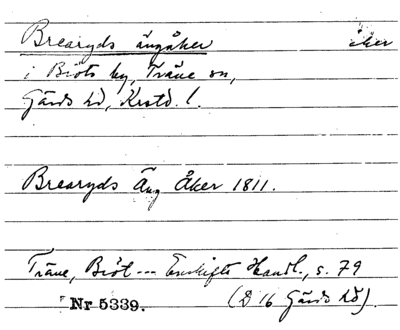 Brearyds ängåker åker
i Biöts by, Träne sn,
Gärds hd, Krstd. l.
Brearyds Äng Åker 1811.
Träne, Biöt --- Enskifts Handl., s. 79
Nr 5339. (D 16 Gärds hd).